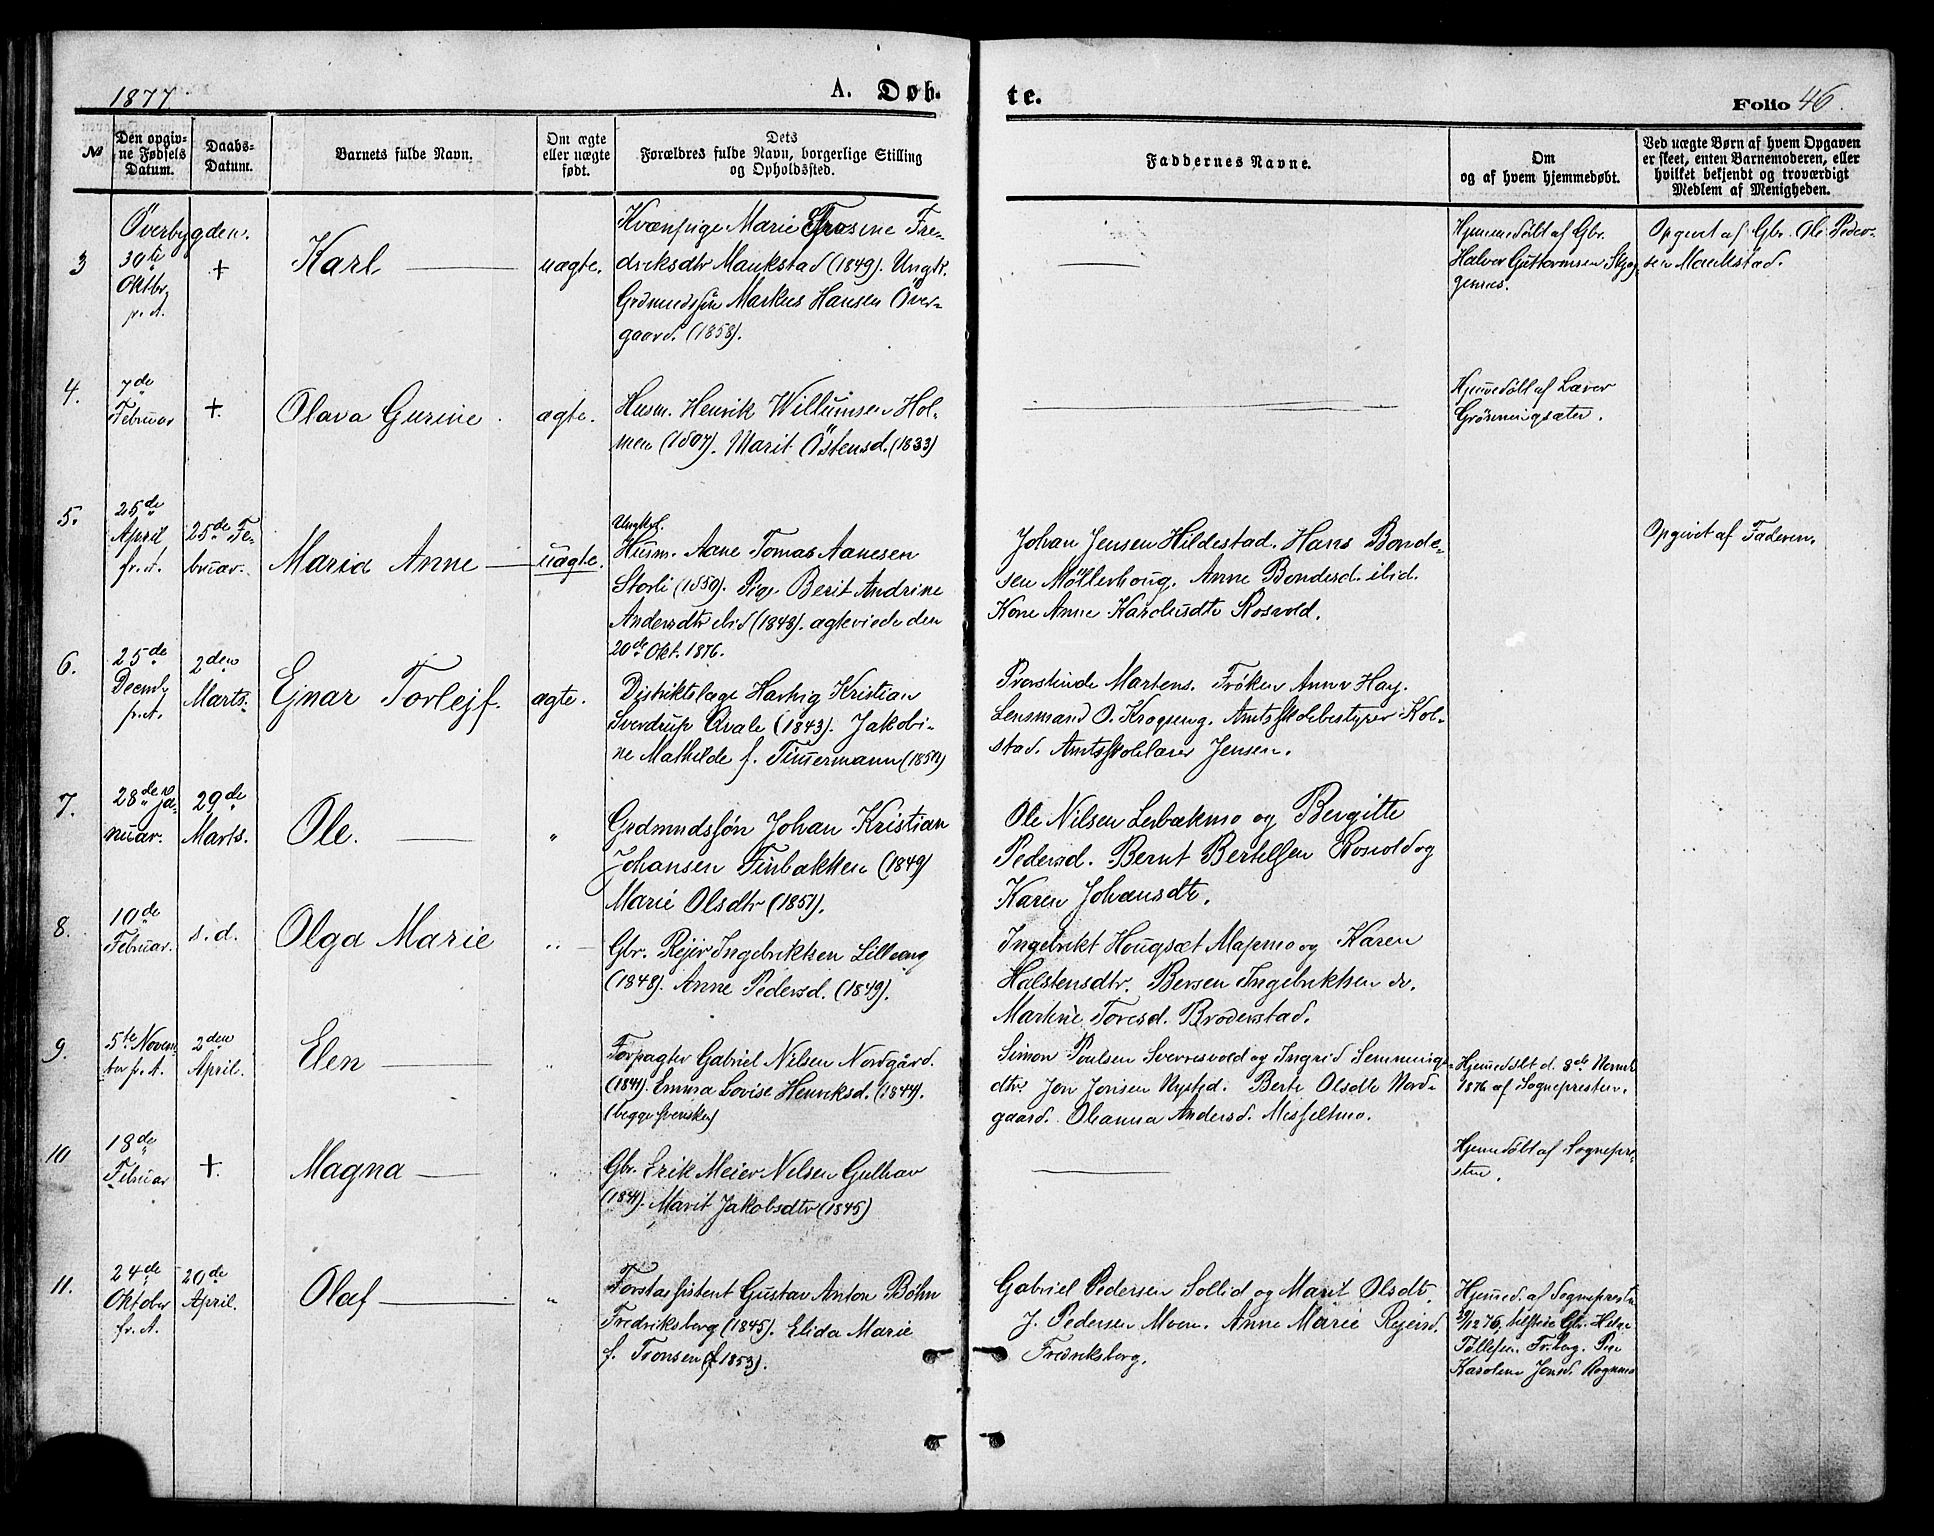 1877
A. Døb-
te.
Folio 46.
№
Den opgiv-
ne Fødsels
Datum.
Daabs-
Datum.
Barnets fulde Navn.
Om ægte
eller uægte
født.
Dets
Forældres fulde Navn, borgerlige Stilling
og Opholdssted.
Faddernes Navne.
Om
og af hvem hjemmedøbt.
Ved uægte Børn af hvem Opgaven
er skeet, enten Barnemoderen, eller
hvilket bekjendt og troværdigt
Medlem af Menigheden.
Överbygden.
3
30te
Oktbr.
f. A.
+
Karl
uægte.
Kvænpige Marie Fre-
driksdtr Maukstad (1849). Ungkr.
Grdmandssön Markus Hansen Över-
gaard. (1858).
Hjemmedöbt af Gbr.
Halvor Guttormsen Skjæ-
Opgivt af Gbr. Ole Peder-
sen Maukstad.
4.
7de
Februar
+.
Olava Gurine.
ægte.
Husm. Henrik Willumsen Hol-
men (1807). Marit Östensd. (1833)
Hjemmedöbt af Lærer
Grönningsæter.
5.
25de
April
f. A.
25de Fe-
bruar.
Maria Anne
uægte.
Ungkrl.
Husm. Aane Tomas Aanesen
Storli (1850). Pige Berit Andrine
Andersdtr ibid (1848). ægteviede den
20de Okt. 1876.
Johan Jensen Hildestad. Hans Bonde-
sen Möllerhoug. Anne Bondesd. ibid.
Kone Anne Karolusdtr Rosvold.
Opgivet af Faderen.
6.
25de
Decmb.
f. A.
2den
Marts.
Ejnar Torlejf.
ægte.
Distriktslæge Hartvig Kristian
Sverdrup Qvale (1843). Jakobi-
ne Mathilde f. Timmermann (1850)
Provstinde Martens. Fröken Anna Hay.
Lensmand O. Krogseng. Amtsskolebestyrer Kol-
stad. Amtsskolelærer Jensen.
7.
28de Ja-
nuar.
29de
Marts.
Ole.
"
Grdmandssön Johan Kristian
Johansen Finbakken (1849)
Marie Olsdtr (1851).
Ole Nilsen Lerbækmo og Bergitte
Pedersd. Bernt Bertelsen Rosvold og
Karen Johansdtr.
8.
10de
Februar.
s. d.
Olga Marie
"
Gbr. Rejer Ingebriktsen Lilleeng
(1848). Anne Pedersd. (1849).
Ingebrikt Hougsæt Majemo og Karen
Halstensdtr. Bersen Ingebriktsen do.
Martine Toresd. Broderstad.
9.
5te Novem-
ber f. A.
2den
April.
Elen
"
Forpagter Gabriel Nilsen Nordgård.
(1841). Emma Lovise Henriksd. (1844).
(begge svenske)
Simon Poulsen Sverresvold og Ingrid Semmings-
dtr. Jon Jonsen Nysted. Berte Olsdtr Nord-
gaard. Oleanna Andersd. Mesfjelmo.
Hjemmedöbt d. 8de Novmb.
1876 af Sognepresten.
10
18de
Februar
+.
Magna
"
Gbr. Erik Meier Nilsen Gulhav
(1841). Marit Jakobsdtr (1845)
Hjemmedöbt af Sognepre-
sten.
11.
24de
Oktober
f. A.
20de
April.
Olaf
"
Forstassistent Gustav Anton Böhn
Fredriksberg (1845). Elida Marie
f. Tronsen (1853).
Gabriel Pedersen Sollid og Marit Olsdtr.
J. Pedersen Moen. Anne Marie Rejersd.
Fredriksberg.
Hjemmed. af Sognepresten
Tollefsen Pige
Karoline Jonsd. Rognmo